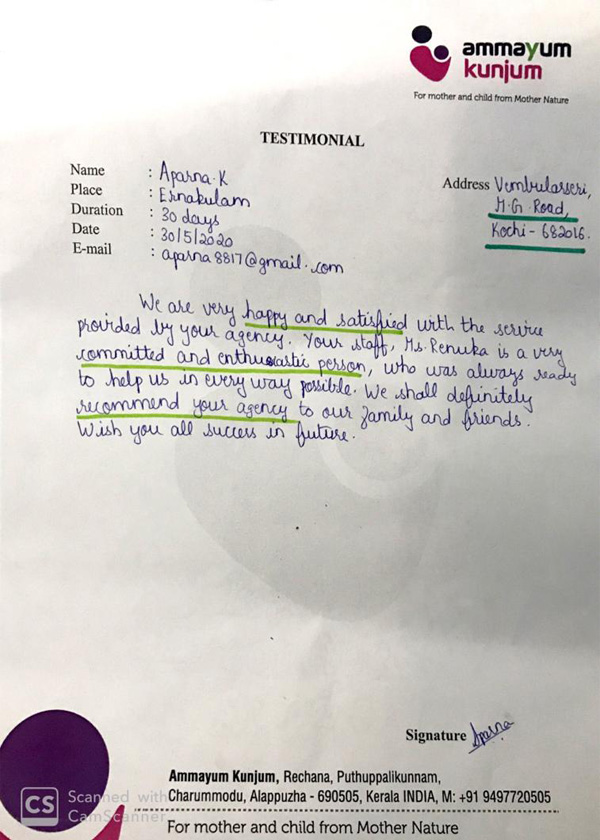 ammayum
kunjum
For mother and child from Mother Nature
TESTIMONIAL
Name : Aparna.K
Place : Ernakulam
Duration : 30 days
Date : 30/5/2020
E-mail : aparna8817@gmail.com
Address Vembulasseri,
M.G. Road,
Kochi - 682016.
We are very happy and satisfied with the service
provided by your agency. Your staff, Ms. Renuka is a very
committed and enthusiastic person, who was always ready
to help us in every way possible. We shall definitely
recommend your agency to our family and friends.
Wish you all success in future.
Signature Aparna
Ammayum Kunjum, Rechana, Puthuppalikunnam,
Charummodu, Alappuzha - 690505, Kerala INDIA, M: +91 9497720505
For mother and child from Mother Nature
CS Scanned with
CamScanner